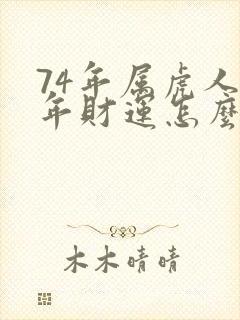 74年属虎人
年财运怎麽
木木晴晴